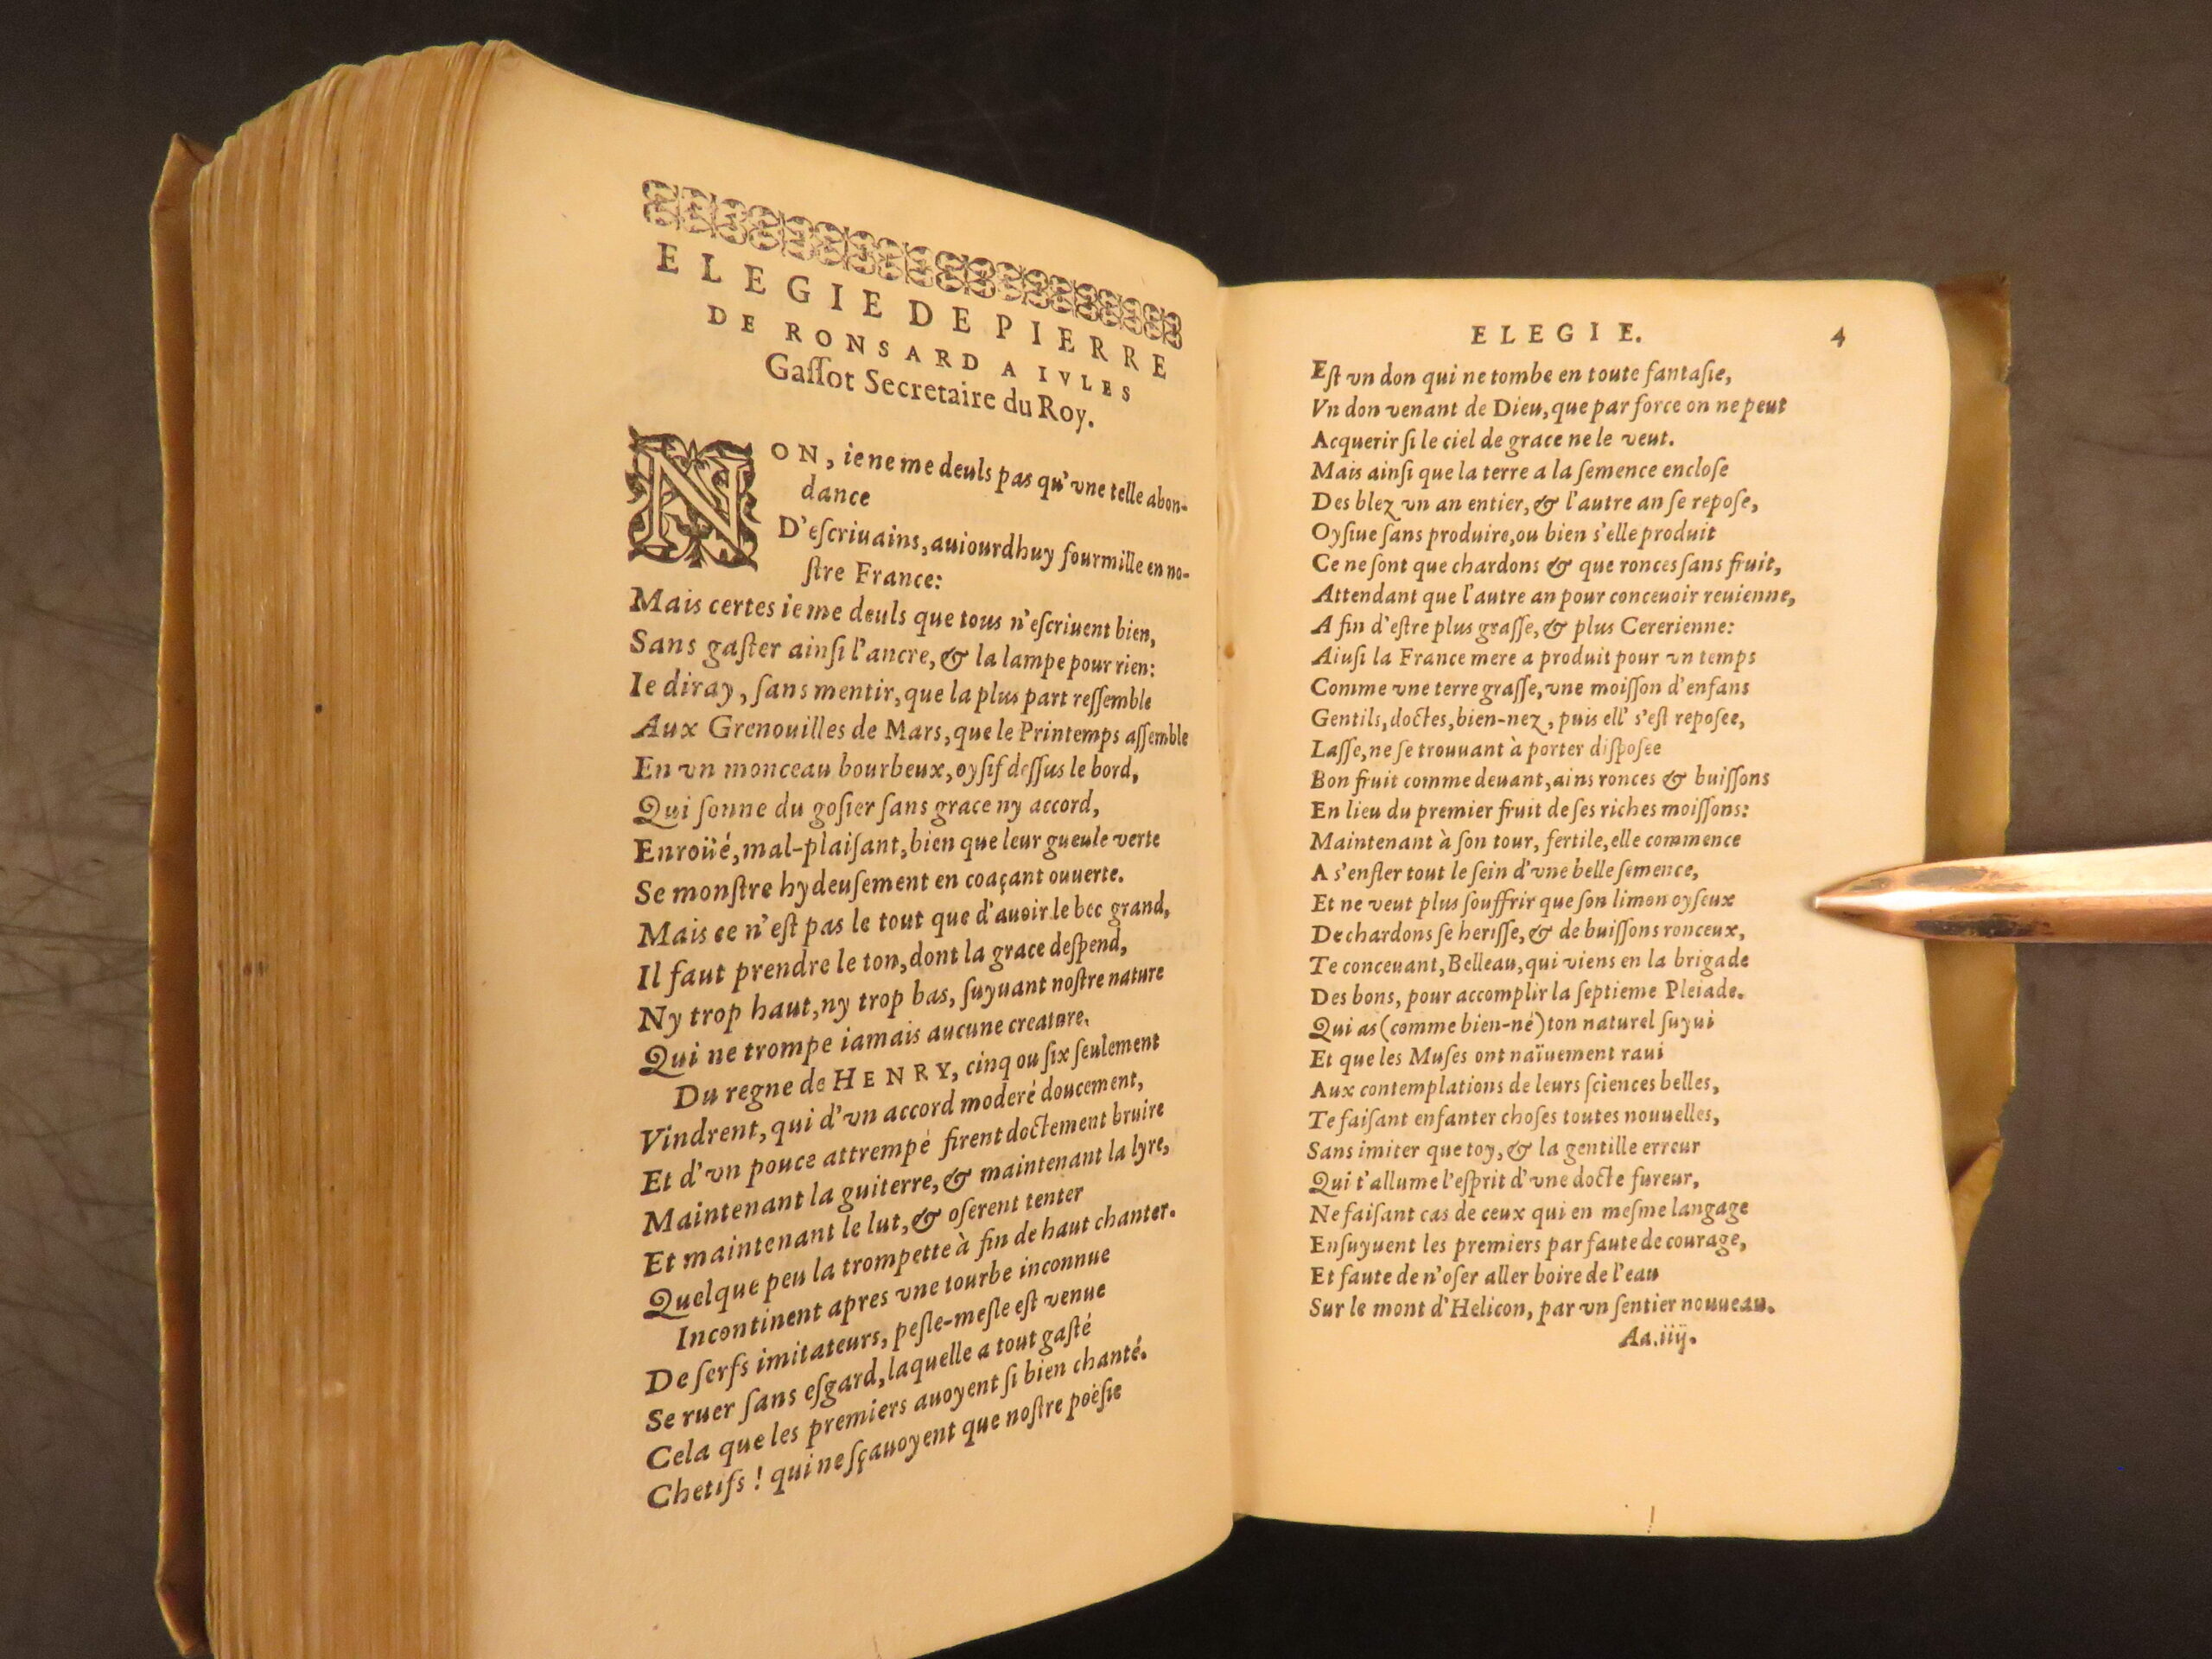 ELEGIE DE PIERRE
DE RONSARD A IVLES
Gaſſot Secretaire du Roy.
NON, ie ne me deuls pas qu'vne telle abon-
dance
D'eſcriuains, auiourdhuy fourmille en no-
ſtre France:
Mais certes ie me deuls que tous n'eſcriuent bien,
Sans gaſter ainſi l'ancre, & la lampe pour rien:
Ie diray, ſans mentir, que la plus part reſſemble
Aux Grenouilles de Mars, que le Printemps aſſemble
En vn monceau bourbeux, oyſif deſſus le bord,
Qui ſonne du goſier ſans grace ny accord,
Enroüé, mal-plaiſant, bien que leur gueule verte
Se monſtre hydeuſement en coaçant ouuerte.
Mais ce n'eſt pas le tout que d'auoir le bec grand,
Il faut prendre le ton, dont la grace deſpend,
Ny trop haut, ny trop bas, ſuyuant noſtre nature
Qui ne trompe iamais aucune creature.
Du regne de HENRY, cinq ou ſix ſeulement
Vindrent, qui d'vn accord moderé doucement,
Et d'vn pouce attrempé firent doctement bruire
Maintenant la guiterre, & maintenant la lyre,
Et maintenant le lut, & oſerent tenter
Quelque peu la trompette à fin de haut chanter.
Incontinent apres vne tourbe inconnue
De ſerfs imitateurs, peſle-meſle eſt venue
Se ruer ſans eſgard, laquelle a tout gaſté
Cela que les premiers auoyent ſi bien chanté.
Chetifs ! qui ne ſçauoyent que noſtre poëſie
ELEGIE. 4
Eſt vn don qui ne tombe en toute fantaſie,
Vn don venant de Dieu, que par force on ne peut
Acquerir ſi le ciel de grace ne le veut.
Mais ainſi que la terre a la ſemence encloſe
Des blez vn an entier, & l'autre an ſe repoſe,
Oyſiue ſans produire, ou bien s'elle produit
Ce ne ſont que chardons & que ronces ſans fruit,
Attendant que l'autre an pour conceuoir reuienne,
A fin d'eſtre plus graſſe, & plus Cererienne:
Aiuſi la France mere a produit pour vn temps
Comme vne terre graſſe, vne moiſſon d'enfans
Gentils, doctes, bien-nez, puis ell' s'eſt repoſee,
Laſſe, ne ſe trouuant à porter diſpoſée
Bon fruit comme deuant, ains ronces & buiſſons
En lieu du premier fruit de ſes riches moiſſons:
Maintenant à ſon tour, fertile, elle commence
A s'enfler tout le ſein d'vne belle ſemence,
Et ne veut plus ſouffrir que ſon limon oyſeux
De chardons ſe heriſſe, & de buiſſons ronceux,
Te conceuant, Belleau, qui viens en la brigade
Des bons, pour accomplir la ſeptieme Pleiade.
Qui as (comme bien-né) ton naturel ſuyui
Et que les Muſes ont naïuement raui
Aux contemplations de leurs ſciences belles,
Te faiſant enfanter choſes toutes nouuelles,
Sans imiter que toy, & la gentille erreur
Qui t'allume l'eſprit d'vne docte fureur,
Ne faiſant cas de ceux qui en meſme langage
Enſuyuent les premiers par faute de courage,
Et faute de n'oſer aller boire de l'eau
Sur le mont d'Helicon, par vn ſentier nouueau.
Aa.iiij.